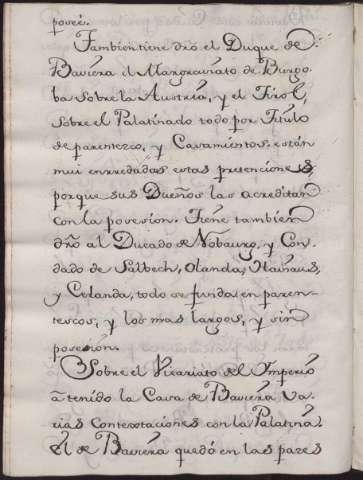 poveé.
Tambien tiene dró el Duque de
Baviera el Margraviato de Burgo-
ba sobre la Austria, y el Tirol,
sobre el Palatinado todo por Titulo
de parentezco, y Cavamientos: están
mui enrredadas estas pretencione s,
porque sus Dueños las acreditan
con la povesion. Tiene tambien
dró al Ducado de Nobaurg, y Con-
dado de Salbech, Olanda, Hainaus,
y Celanda, todo se funda en paren-
tescos, y los mas largos, y sin
povesion.
Sobre el Vicariato del Imperio
à tenido la Cava de Baviera Va-
rias Contextaciones con la Palatina,
el de Baviera quedó en las pazes